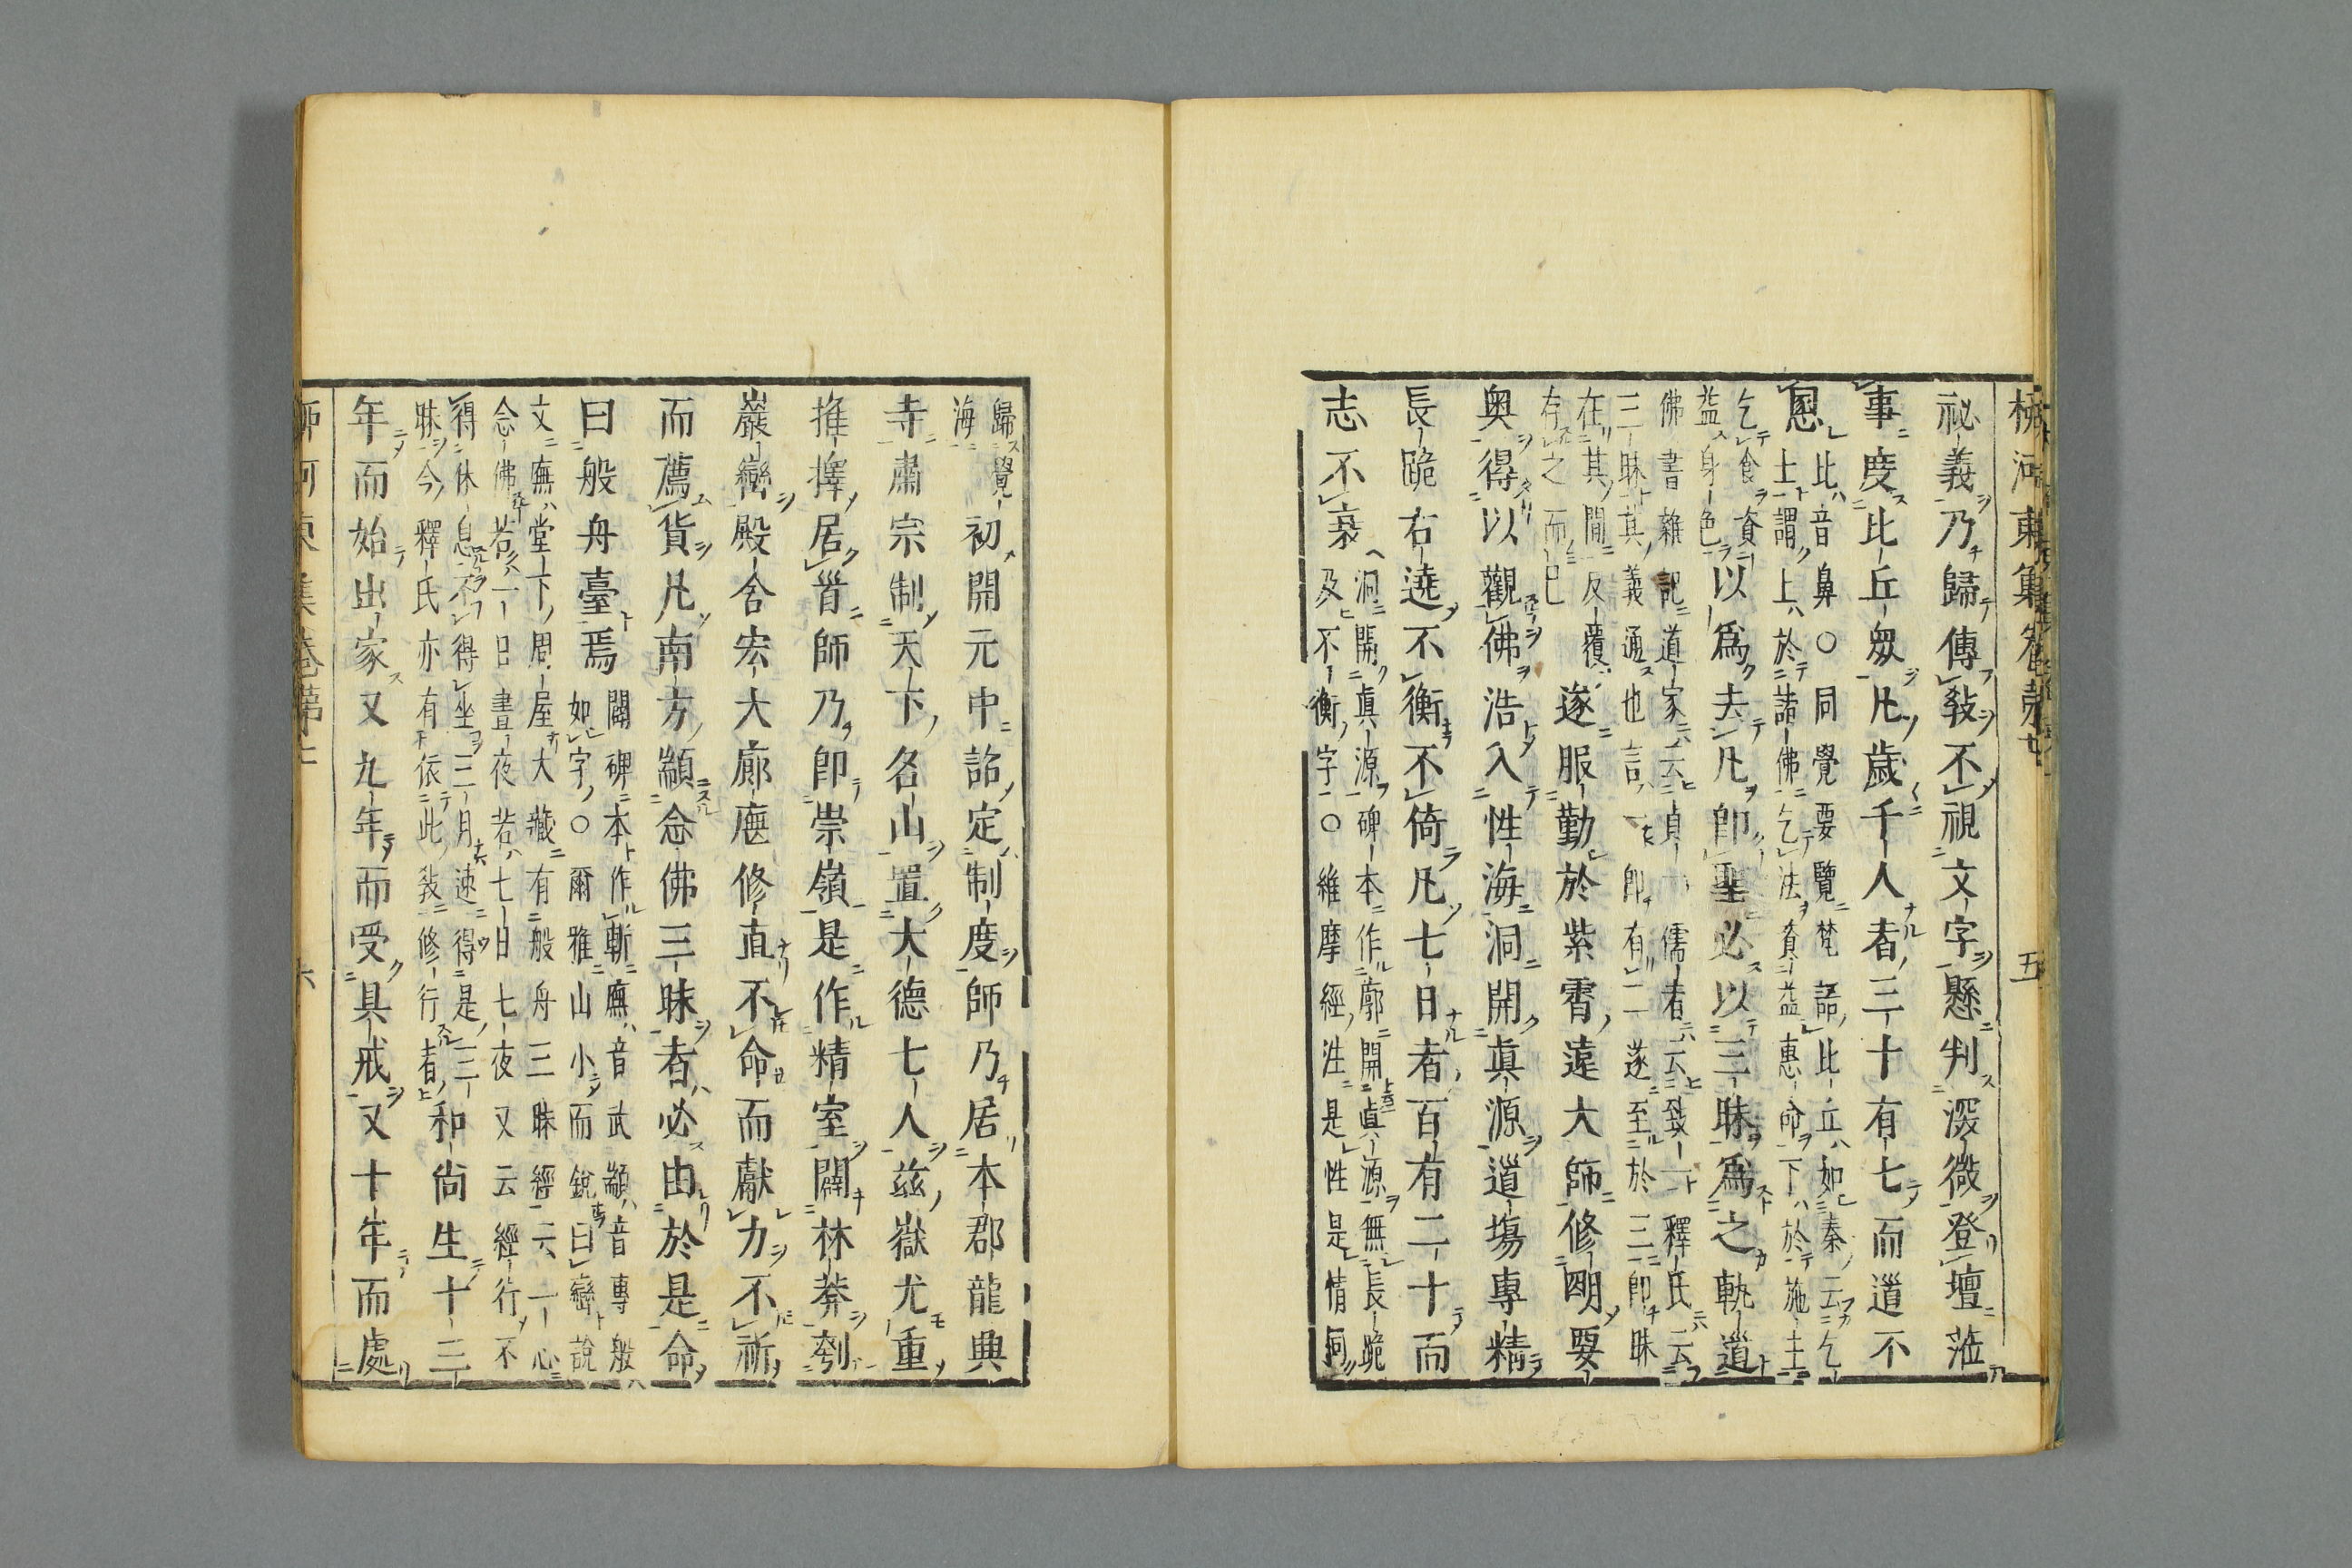 柳河東集卷第七 五
祕義乃歸傳敎不視文字懸判深微登壇蒞
事度比丘衆凡歲千人者三十有七而道不
慁
比音鼻○同覺要覽梵語比丘如秦云乞
士謂上於諸佛乞法資益惠命下於施主
乞食資
益身色
以爲去凡卽聖必以三昧爲之軌道
佛書雜記道家云貞一儒者云致一釋氏云
三昧其義通也言一卽有二遂至於三卽昧
在其間反覆
存之而已
遂服勤於紫霄遠大師修明要
奥得以觀佛浩入性海洞開眞源道場專精
長跪右遶不衡不倚凡七日者百有二十而
志不衰
洞開眞源碑本作廓開眞源無長跪
及不衡字○維摩經注是性是情洞
歸覺
海
初開元中詔定制度師乃居本郡龍興
寺肅宗制天下名山置大德七人茲嶽尤重
推擇居首師乃卽崇嶺是作精室闢林莽刳
巖巒殿舍宏大廊廡修直不命而獻力不祈
而薦貨凡南方顓念佛三昧者必由於是命
曰般舟臺焉
闢碑本作斬廡音武顓音專般
如字○爾雅山小而銳曰巒說
文廡堂下周屋大藏有般舟三昧經云一心
念佛若一日晝夜若七日七夜又云經行不
得休息不得坐三月速得是三
昧今釋氏亦有依此敎修行者
和尚生十三
年而始出家又九年而受具戒又十年而處
柳河東集卷第七 六